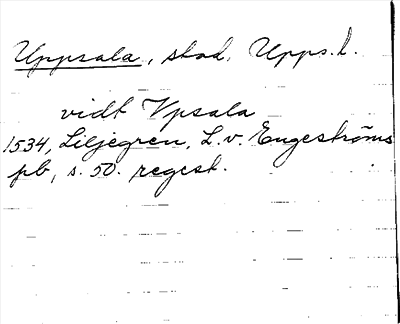 Uppsala, stad, Upps.l.
vidt Vpsala
1534, Liljegren, L.v. Engeströms
pb, s. 50. regest.